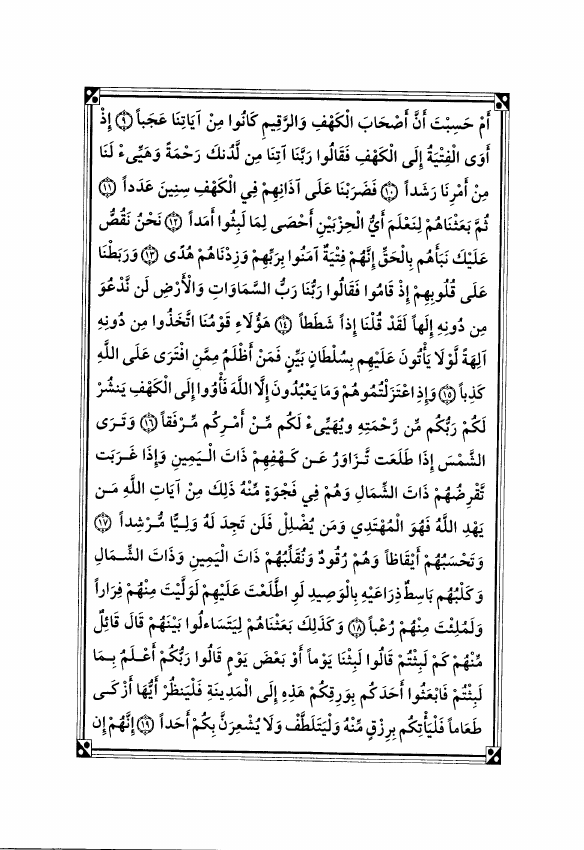 أَمْ حَسِبْتَ أَنَّ أَصْحَابَ الْكَهْفِ وَالرَّقِيمِ كَانُوا مِنْ آيَاتِنَا عَجَباً ﴿٩﴾ إِذْ
أَوَى الْفِتْيَةُ إِلَى الْكَهْفِ فَقَالُوا رَبَّنَا آتِنَا مِن لَّدُنكَ رَحْمَةً وَهَيِّىءْ لَنَا
مِنْ أَمْرِنَا رَشَداً ﴿١٠﴾ فَضَرَبْنَا عَلَى آذَانِهِمْ فِي الْكَهْفِ سِنِينَ عَدَداً ﴿١١﴾
ثُمَّ بَعَثْنَاهُمْ لِنَعْلَمَ أَيُّ الْحِزْبَيْنِ أَحْصَى لِمَا لَبِثُوا أَمَداً ﴿١٢﴾ نَحْنُ نَقُصُّ
عَلَيْكَ نَبَأَهُم بِالْحَقِّ إِنَّهُمْ فِتْيَةٌ آمَنُوا بِرَبِّهِمْ وَزِدْنَاهُمْ هُدًى ﴿١٣﴾ وَرَبَطْنَا
عَلَى قُلُوبِهِمْ إِذْ قَامُوا فَقَالُوا رَبُّنَا رَبُّ السَّمَاوَاتِ وَالْأَرْضِ لَن نَّدْعُوَ
مِن دُونِهِ إِلَهاً لَقَدْ قُلْنَا إِذاً شَطَطاً ﴿١٤﴾ هَؤُلَاءِ قَوْمُنَا اتَّخَذُوا مِن دُونِهِ
آلِهَةً لَّوْلَا يَأْتُونَ عَلَيْهِم بِسُلْطَانٍ بَيِّنٍ فَمَنْ أَظْلَمُ مِمَّنِ افْتَرَى عَلَى اللَّهِ
كَذِباً ﴿١٥﴾ وَإِذِ اعْتَزَلْتُمُوهُمْ وَمَا يَعْبُدُونَ إِلَّا اللَّهَ فَأْوُوا إِلَى الْكَهْفِ يَنشُرْ
لَكُمْ رَبُّكُم مِّن رَّحْمَتِهِ وَيُهَيِّىءْ لَكُم مِّنْ أَمْرِكُم مِّرْفَقاً ﴿١٦﴾ وَتَرَى
الشَّمْسَ إِذَا طَلَعَت تَّزَاوَرُ عَن كَهْفِهِمْ ذَاتَ الْيَمِينِ وَإِذَا غَرَبَت
تَّقْرِضُهُمْ ذَاتَ الشِّمَالِ وَهُمْ فِي فَجْوَةٍ مِّنْهُ ذَلِكَ مِنْ آيَاتِ اللَّهِ مَن
يَهْدِ اللَّهُ فَهُوَ الْمُهْتَدِي وَمَن يُضْلِلْ فَلَن تَجِدَ لَهُ وَلِيًّا مُّرْشِداً ﴿١٧﴾
وَتَحْسَبُهُمْ أَيْقَاظاً وَهُمْ رُقُودٌ وَنُقَلِّبُهُمْ ذَاتَ الْيَمِينِ وَذَاتَ الشِّمَالِ
وَكَلْبُهُم بَاسِطٌ ذِرَاعَيْهِ بِالْوَصِيدِ لَوِ اطَّلَعْتَ عَلَيْهِمْ لَوَلَّيْتَ مِنْهُمْ فِرَاراً
وَلَمُلِئْتَ مِنْهُمْ رُعْباً ﴿١٨﴾ وَكَذَلِكَ بَعَثْنَاهُمْ لِيَتَسَاءلُوا بَيْنَهُمْ قَالَ قَائِلٌ
مِّنْهُمْ كَمْ لَبِثْتُمْ قَالُوا لَبِثْنَا يَوْماً أَوْ بَعْضَ يَوْمٍ قَالُوا رَبُّكُمْ أَعْلَمُ بِمَا
لَبِثْتُمْ فَابْعَثُوا أَحَدَكُم بِوَرِقِكُمْ هَذِهِ إِلَى الْمَدِينَةِ فَلْيَنظُرْ أَيُّهَا أَزْكَى
طَعَاماً فَلْيَأْتِكُم بِرِزْقٍ مِّنْهُ وَلْيَتَلَطَّفْ وَلَا يُشْعِرَنَّ بِكُمْ أَحَداً ﴿١٩﴾ إِنَّهُمْ إِن